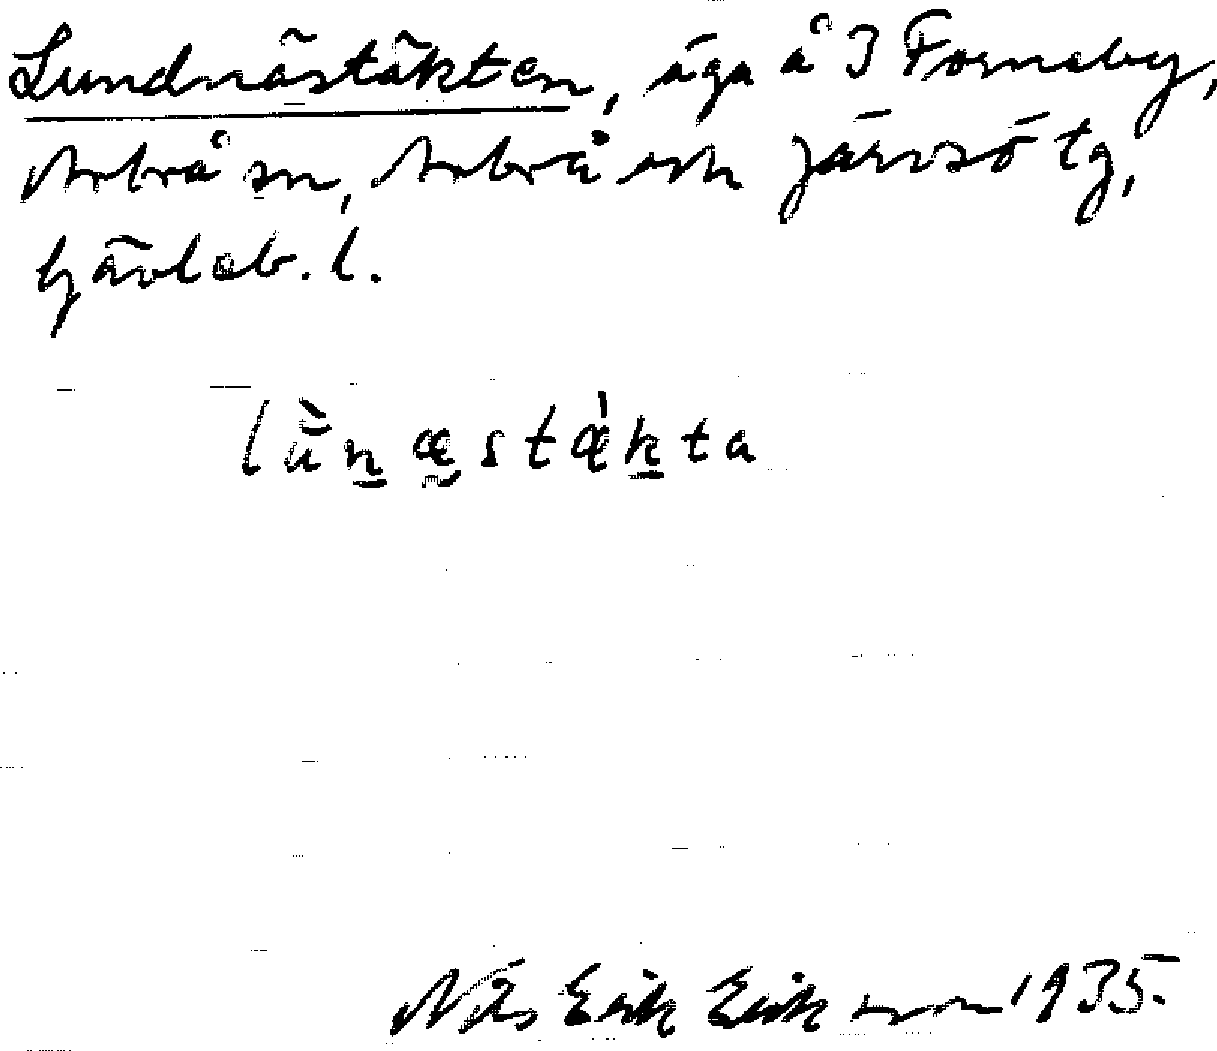 Lundnästäkten, äga å 3 Forneby,
Arbrå sn, Arbrå och Järvsö tg,
Gävleb. l.
lǜn̲æstæ̀k̲ta
Nils Erik Eriksson 1935.